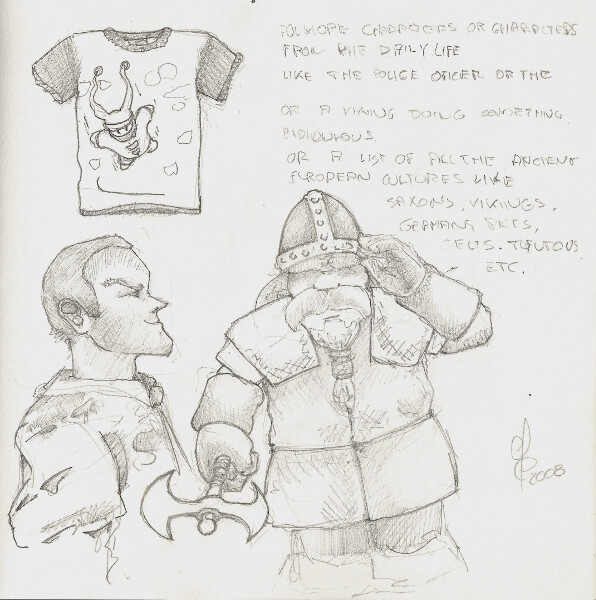 FOLKLORE CHARACTERS OR CHARACTERS
FROM THE DAILY LIFE
LIKE THE POLICE OFICER OR THE
OR A VIKING DOING SOMETHING
RIDICULOUS.
OR A LIST OF ALL THE ANCIENT
EUROPEAN CULTURES LIKE
SAXONS, VIKINGS,
GERMANS, PICTS,
CELTS. TEUTOUS
ETC.
2008